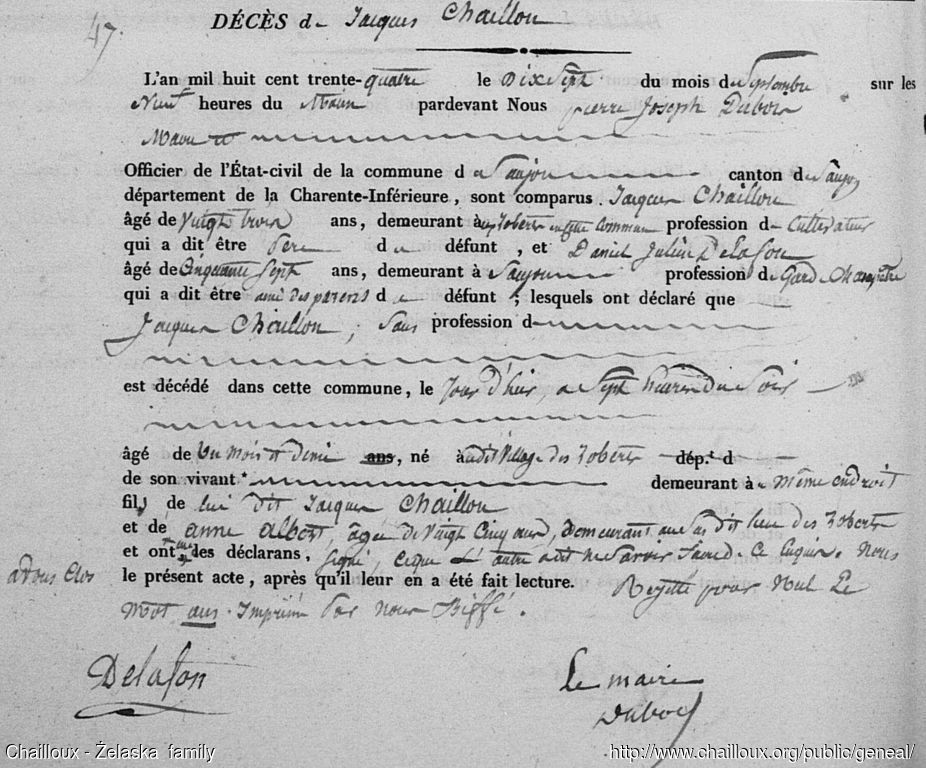 47.
DÉCÈS de Jacques Chaillou
L'an mil huit cent trente-quatre le Dix Sept du mois de Septembre sur les
Neuf heures du Matin pardevant Nous pierre Joseph Dubois
Maire et
Officier de l'État-civil de la commune d e Saujon canton d e Saujon
département de la Charente-Inférieure, sont comparus Jacques Chaillou
âgé de Vingt trois ans, demeurant à en cette Commune profession d e Cultivateur
qui a dit être Père d u défunt , et Daniel Julien Delafon
âgé de Cinquante Sept ans, demeurant à Saujon profession d e Garde Champêtre
qui a dit être ami des parens d u défunt ; lesquels ont déclaré que
Jacques Chaillou, Sans profession d
est décédé dans cette commune, le Jour d'hier, a Sept heures du Soir
âgé de Un mois et demi ans, né à udit Village des Zoberts dép.t d
de son vivant demeurant à u même endroit
fils de lui dit Jacques Chaillou
et de anne albert, agée de Vingt Cinq ans, demeurant au Sus dit lieu des Zoberts
et ont des déclarans, Signé, ce que L'autre a dit ne Savoir faire de ce requis. Nous
avons clos
le présent acte, après qu'il leur en a été fait lecture. Rejetté pour Nul Le
Mot ans Imprimé Par nous Biffé.
Delafon
Le maire
Dubois
Chailloux - Żelaska family
http://www.chailloux.org/public/geneal/